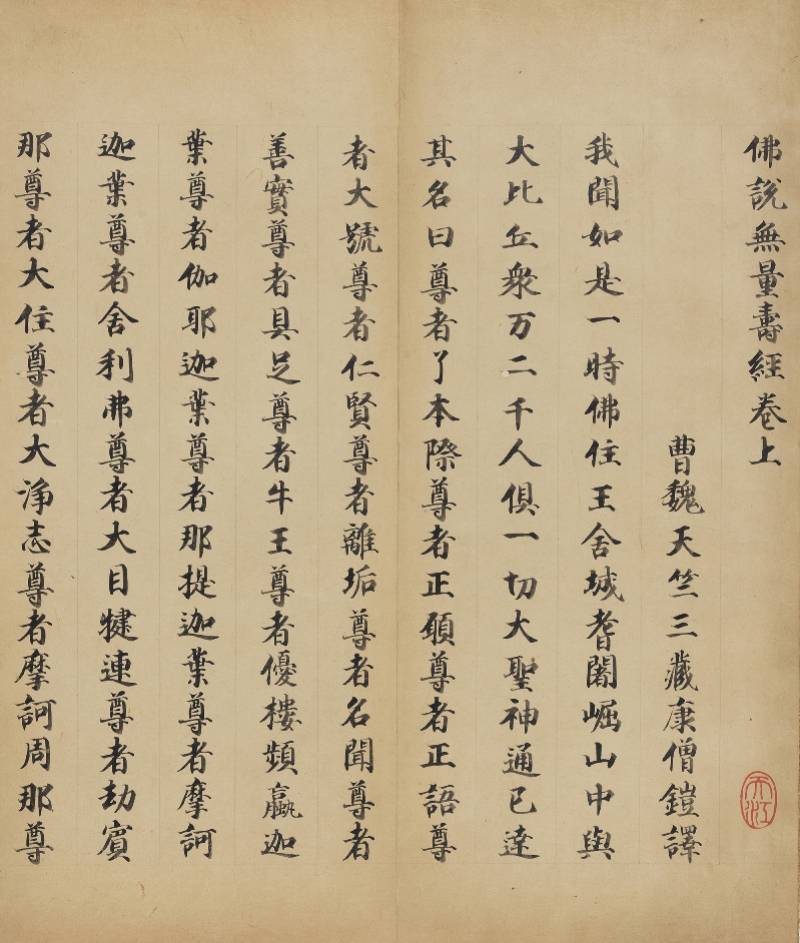 佛説無量壽經卷上
曹魏天竺三藏康僧鎧譯
我聞如是一時佛住王舍城耆闍崛山中與
大比丘衆万二千人俱一切大聖神通已達
其名曰尊者了本際尊者正願尊者正語尊
者大號尊者仁賢尊者離垢尊者名聞尊者
善實尊者具足尊者牛王尊者優樓頻蠃迦
葉尊者伽耶迦葉尊者那提迦葉尊者摩訶
迦葉尊者舍利弗尊者大目犍連尊者劫賓
那尊者大住尊者大淨志尊者摩訶周那尊